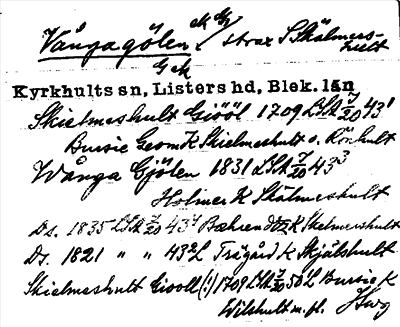 Vångagölen ek Gj strax S Skälmes-
hult
G ek
Kyrkhults sn, Listers hd, Blek. län
Skielmeshult Giööl 1709 LSA 7/20 43¹
Bursie Geom K Skielmeshult o. Rönhult
Wånga Gjölen 1831 LSA 7/20 43³
Holmer K Skälmeshult
Ds. 1835 LSA 7/20 43 Bæhrendtz K Skelmershult
Ds. 1821 " " 43 Trägård K Skjälshult
Skielmeshult Giooll (!) 1709 LSA 7/20 50 Bursie K
Wilshult m. fl.